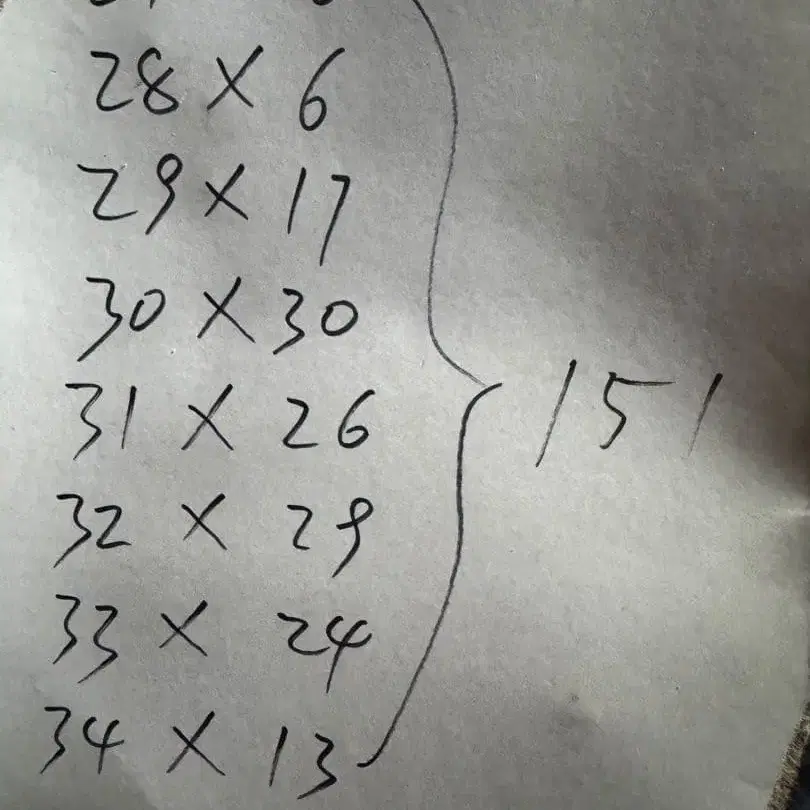 28 × 6
29 × 17
30 × 30
31 × 26
32 × 29
33 × 24
34 × 13
151